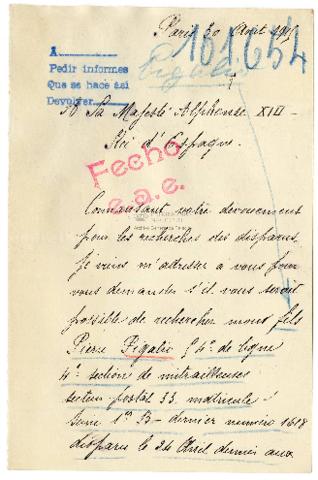 Paris 30 Avril 191
101654
1
Pedir informes
Que se hace asi
Devolver
Figalio
A Sa Majesté Alphonse XIII
Roi d'Espagne.
Fecho
e.a.e.
Connaissant votre dévouement
pour les recherches des disparus,
je viens m'adresser à vous pour
vous demander s'il vous serait
possible de rechercher mons fils
Pierre Figalio 4e de ligne
4e section de mitrailleuses
secteur postal 33 matricule
1618
disparus le 24 Avril dernier aux